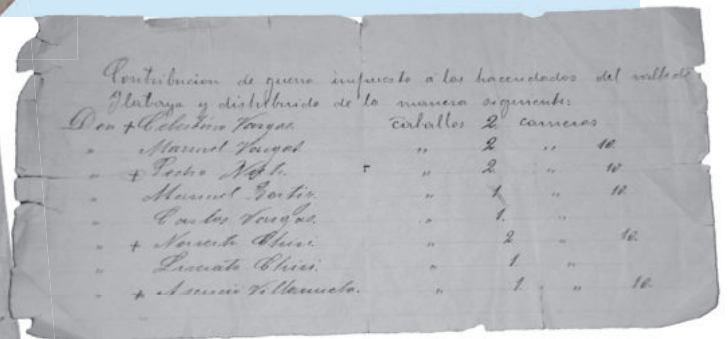 Contribucion de guerra impuesto á los hacendados del valle de
Ilabaya y distribuido de la manera siguiente:
Don + Celestino Vargas. caballos 2 carneros
" Manuel Vargas " 2 " 10.
" + Pedro " 2 " 10
" Manuel " 1. " 10.
" Carlos Vargas. " 1. "
" + Chiri. " 2 " 10.
" Chiri. " 1. "
" + Asencio Villanueva. " 1. " 10.